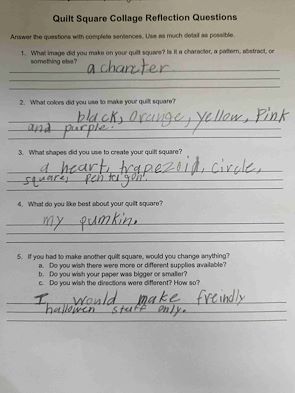 Quilt Square Collage Reflection Questions
Answer the questions with complete sentences. Use as much detail as possible.
1. What image did you make on your quilt square? Is it a character, a pattern, abstract, or
something else?
a charcter
2. What colors did you use to make your quilt square?
black, orange, yellow, Pink
and purple.
3. What shapes did you use to create your quilt square?
a heart, trapezoid, circle,
square, pentagon.
4. What do you like best about your quilt square?
my pumkin.
5. If you had to make another quilt square, would you change anything?
a. Do you wish there were more or different supplies available?
b. Do you wish your paper was bigger or smaller?
c. Do you wish the directions were different? How so?
I would make freindly
hallowen stuff only.